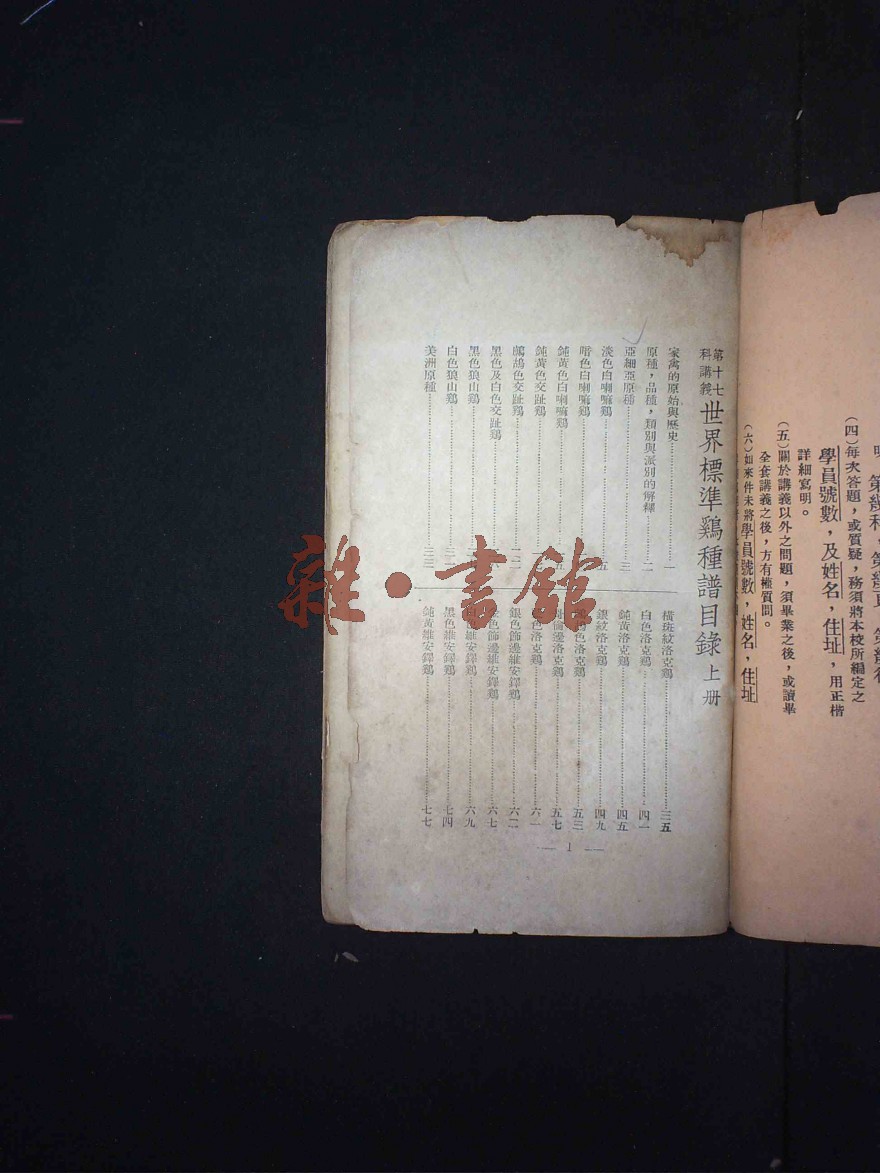 (四)每次答題，或質疑，務須將本校所編定之
學員號數，及姓名，住址，用正楷
詳細寫明。
(五)關於講義以外之問題，須畢業之後，或讀畢
全套講義之後，方有權質問。
(六)如來件未將學員號數，姓名，住址
第十七科講義 世界標準鷄種譜目錄 上册
家禽的原始與歷史 一
原種，品種，類別與派別的解釋 二
亞細亞原種 三
淡色白喇嘛鷄 五
暗色白喇嘛鷄
純黃色白喇嘛鷄
純黃色交趾鷄
鷓鴣色交趾鷄
黑色及白色交趾鷄
黑色狼山鷄
白色狼山鷄
美洲原種 三三
橫斑紋洛克鷄 三五
白色洛克鷄 四一
純黃洛克鷄 四五
銀紋洛克鷄 四九
色洛克鷄 五三
邊洛克鷄 五七
色洛克鷄 六一
銀色飾邊維安鐸鷄 六二
色飾邊維安鐸鷄 六七
色維安鐸鷄 六九
黑色維安鐸鷄 七四
純黃維安鐸鷄 七七
— 1 —
雜·書館